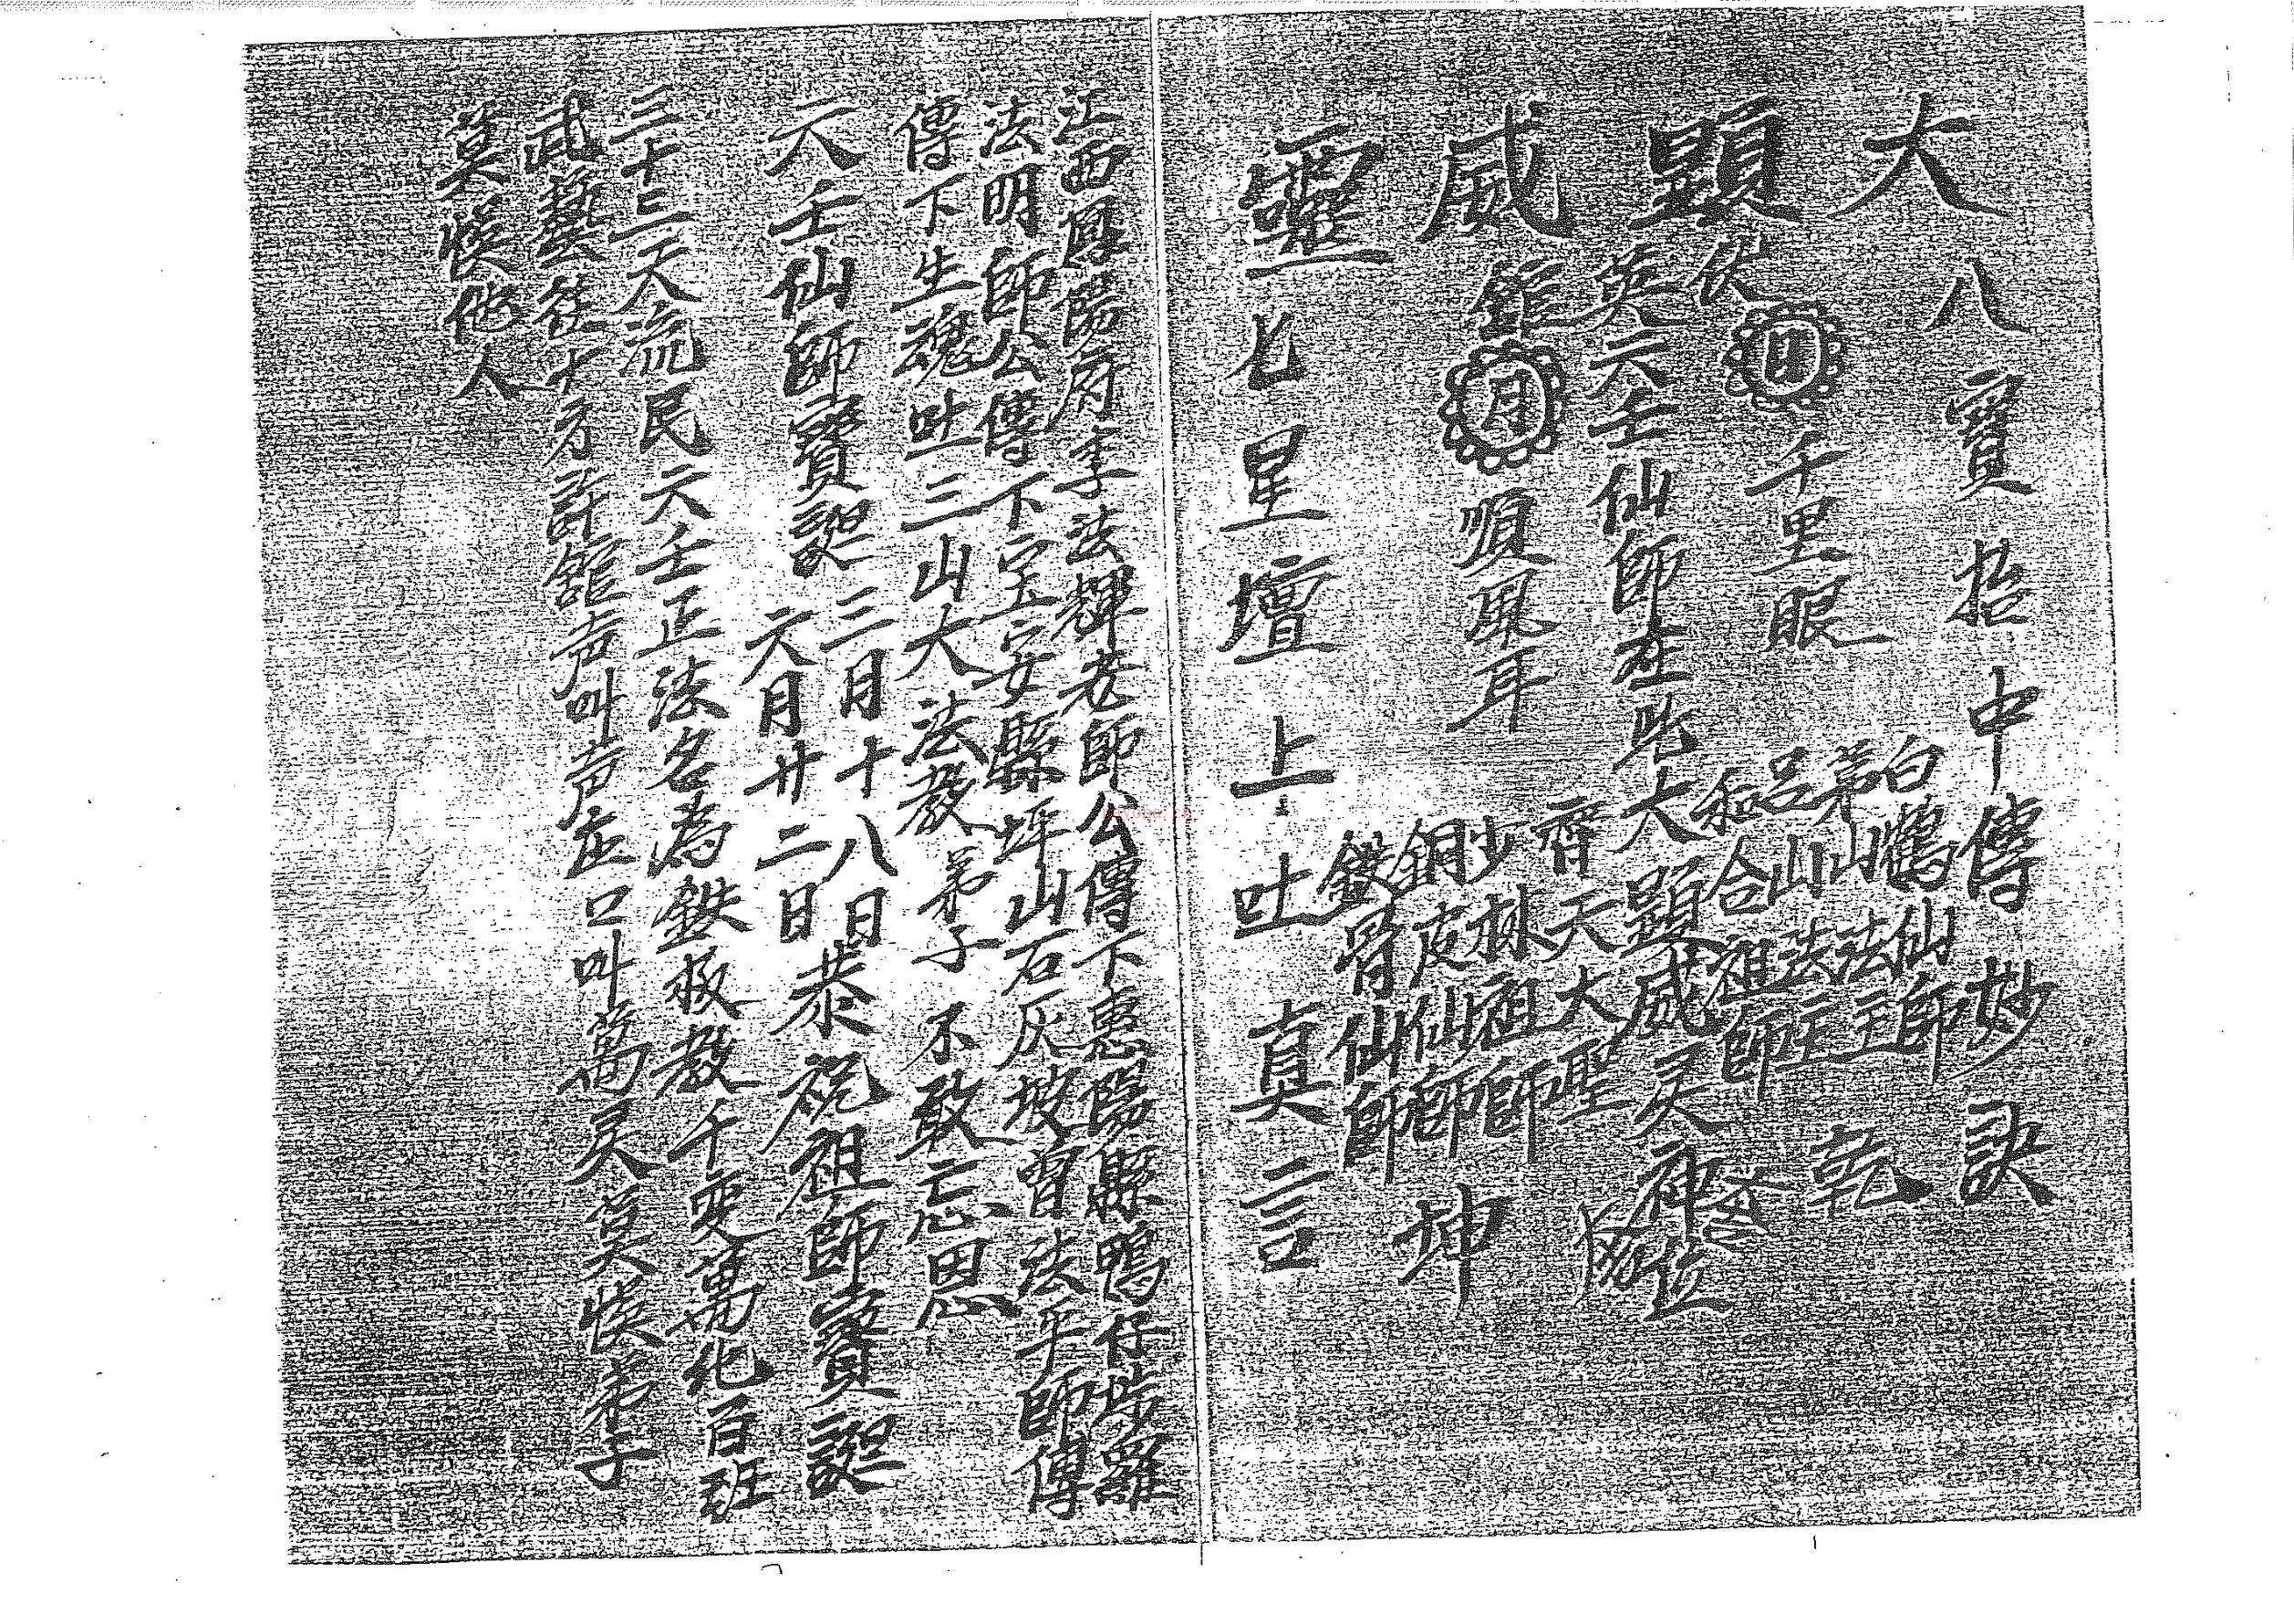 大 八寶抬中傳妙訣
顯 伏 日 千里眼
白鶴仙師
茅山法主
呂山法主
和合祖師
乾
英六壬仙師在此大顯威灵神位
威 舘 月 順風耳
齊天大聖
少林祖師
銅皮仙師
鉄骨仙師
坤
靈 七星壇上吐真言
江西厚陽府李法輝老師公傳下惠陽縣鴨仔埗羅
法明師公傳下宝安縣坪山石灰坡曾法平師傅
傳下生魂吐三山大法教弟子不敢忘恩
六壬仙師寶誕 三月十八日 六月廿二日 恭祝祖師寶誕
三十三天流民六壬正法名為鉄板教千変萬化百班
武藝在十方許舘声叫声应口叫萬灵莫悞弟子
莫悞他人